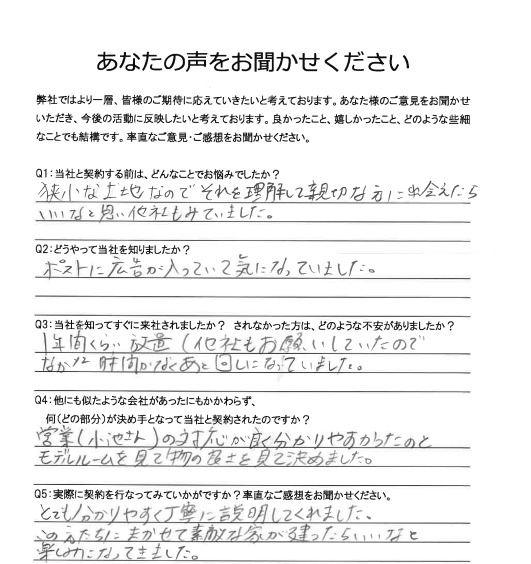 あなたの声をお聞かせください
弊社ではより一層、皆様のご期待に応えていきたいと考えております。あなた様のご意見をお聞かせ
いただき、今後の活動に反映したいと考えております。良かったこと、嬉しかったこと、どのような些細
なことでも結構です。率直なご意見・ご感想をお聞かせください。
Q1:当社と契約する前は、どんなことでお悩みでしたか?
狭小な土地なのでそれを理解して親切な方に出会えたら
いいなと思い他社もみていました。
Q2:どうやって当社を知りましたか?
ポストに広告が入っていて気になっていました。
Q3:当社を知ってすぐに来社されましたか? されなかった方は、どのような不安がありましたか?
1年間くらい放置(他社もお願いしていたので
なかなか時間がなくあと回しになっていました。
Q4:他にも似たような会社があったにもかかわらず、
何(どの部分)が決め手となって当社と契約されたのですか?
営業(小池さん)の対応が良く分かりやすかったのと
モデルルームを見て物の良さを見て決めました。
Q5:実際に契約を行なってみていかがですか?率直なご感想をお聞かせください。
とても分かりやすく丁寧に説明してくれました。
この方たちにまかせて素敵な家が建ったらいいなと
楽しみになってきました。